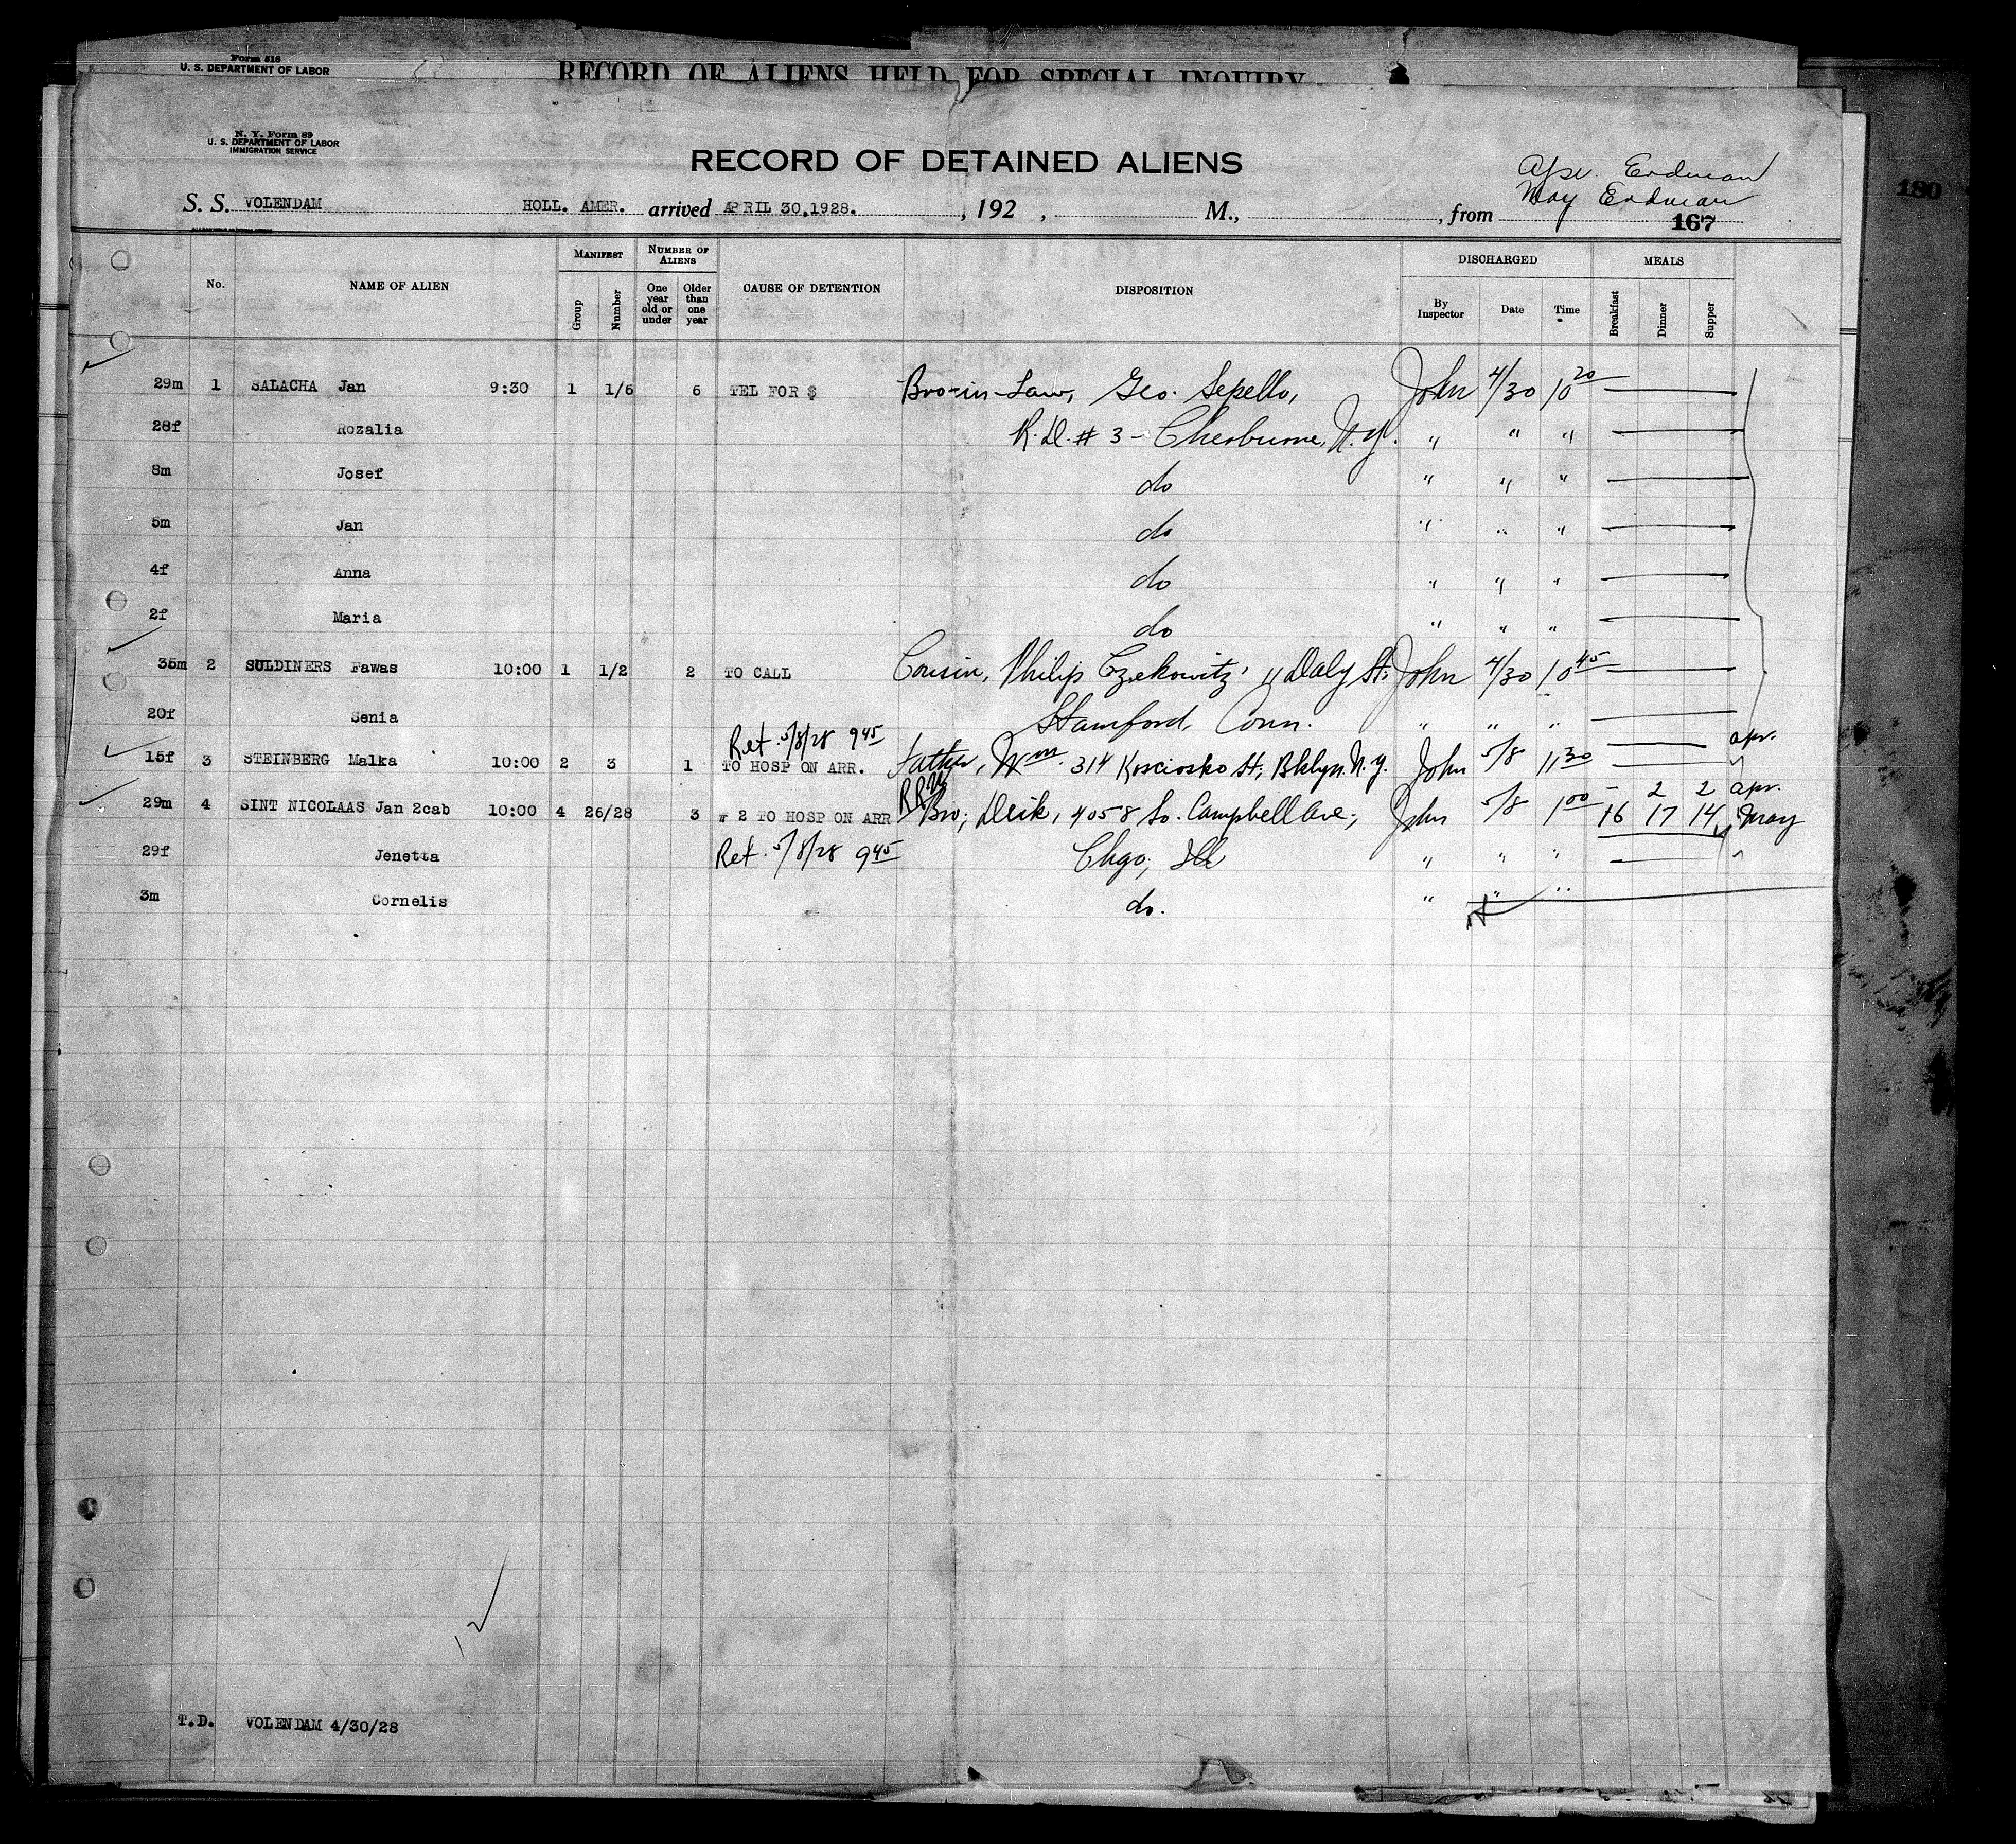 Form 518
U. S. DEPARTMENT OF LABOR
RECORD OF ALIENS HELD FOR SPECIAL INQUIRY
N. Y. Form 89
U. S. DEPARTMENT OF LABOR
IMMIGRATION SERVICE
RECORD OF DETAINED ALIENS
Erdman
May Erdman
180
S. S. VOLENDAM HOLL. AMER. arrived APRIL 30,1928. , 192 , M., , from 167
No. NAME OF ALIEN MANIFEST Group Number NUMBER OF ALIENS One year old or under Older than one year CAUSE OF DETENTION DISPOSITION DISCHARGED By Inspector Date Time MEALS Breakfast Dinner Supper
29m 1 SALACHA Jan 9:30 1 1/6 6 TEL FOR $ Bro-in-Law, Geo. Sepello, John 4/30 10 20
28f Rozalia R.D. # 3 - Cherburne, N.Y. " " "
8m Josef do " " "
5m Jan do " " "
4f Anna do " " "
2f Maria do " " "
35m 2 SULDINERS Fawas 10:00 1 1/2 2 TO CALL Cousin, Philip Czekowitz, 11 Daly St. John 4/30 10 45
20f Senia Stamford, Conn. " " "
Ret. 5/8/28 9 45 apr.
15f 3 STEINBERG Malka 10:00 2 3 1 TO HOSP ON ARR. Father, Wm. 314 Kosciosko St., Bklyn. N.Y. John 5/8 11 30 "
RRW - 2 2 apr.
29m 4 SINT NICOLAAS Jan 2cab 10:00 4 26/28 3 # 2 TO HOSP ON ARR Bro; Dirk, 4058 So. Campbell Ave., John 5/8 1 00 16 17 14 May
29f Jenetta Ret. 5/8/28 9 45 Chgo; Ill " " " "
3m Cornelis do. " " "
12
T.D. VOLENDAM 4/30/28